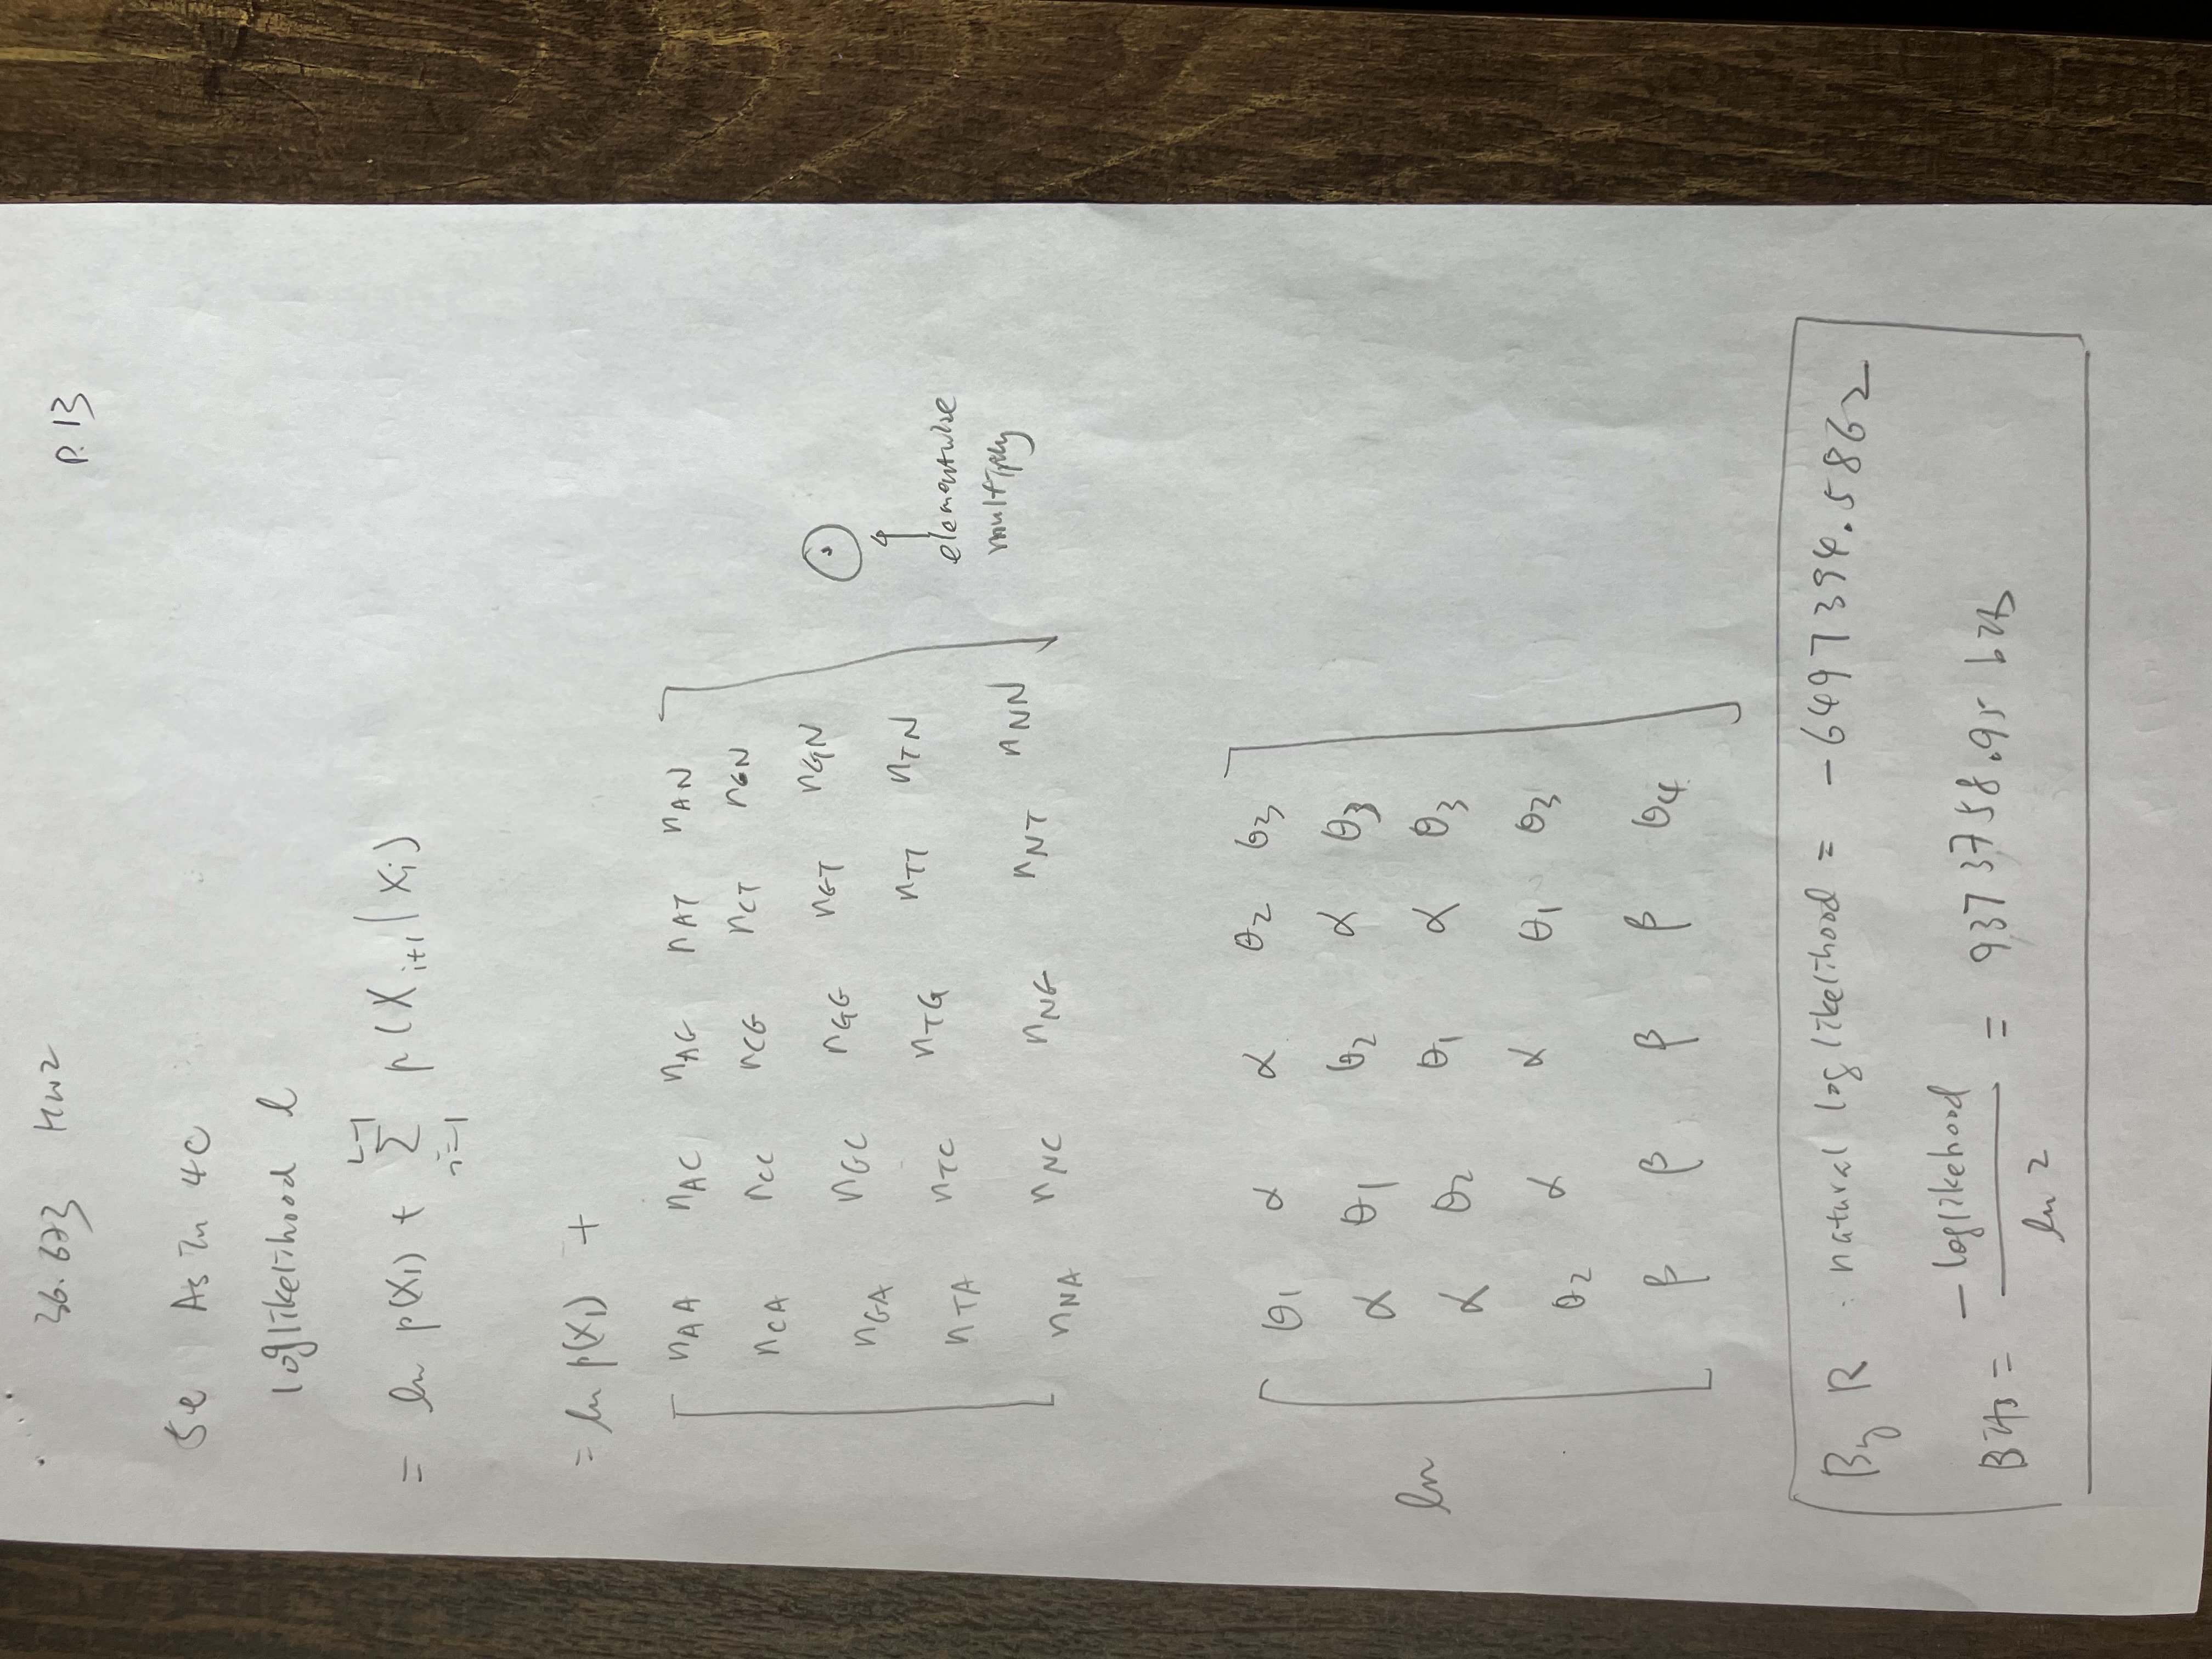 36.673 HW2 P.13
5e As in 4c
loglikelihood l
= ln p(X₁) + Σ_{i=1}^{L-1} p(X_{i+1} | X_i)
= ln p(X₁) +
[ n_AA n_AC n_AG n_AT n_AN
n_CA n_CC n_CG n_CT n_GN
n_GA n_GC n_GG n_GT n_GN
n_TA n_TC n_TG n_TT n_TN
n_NA n_NC n_NG n_NT n_NN ]
⊙
↑
elementwise
multiply
ln [ θ₁ α α θ₂ θ₃
α θ₁ θ₂ α θ₃
α θ₂ θ₁ α θ₃
θ₂ α α θ₁ θ₃
β β β β θ₄ ]
By R : natural loglikelihood = -64973994.5862
Bits = -loglikelihood / ln 2 = 93737588.95 bits